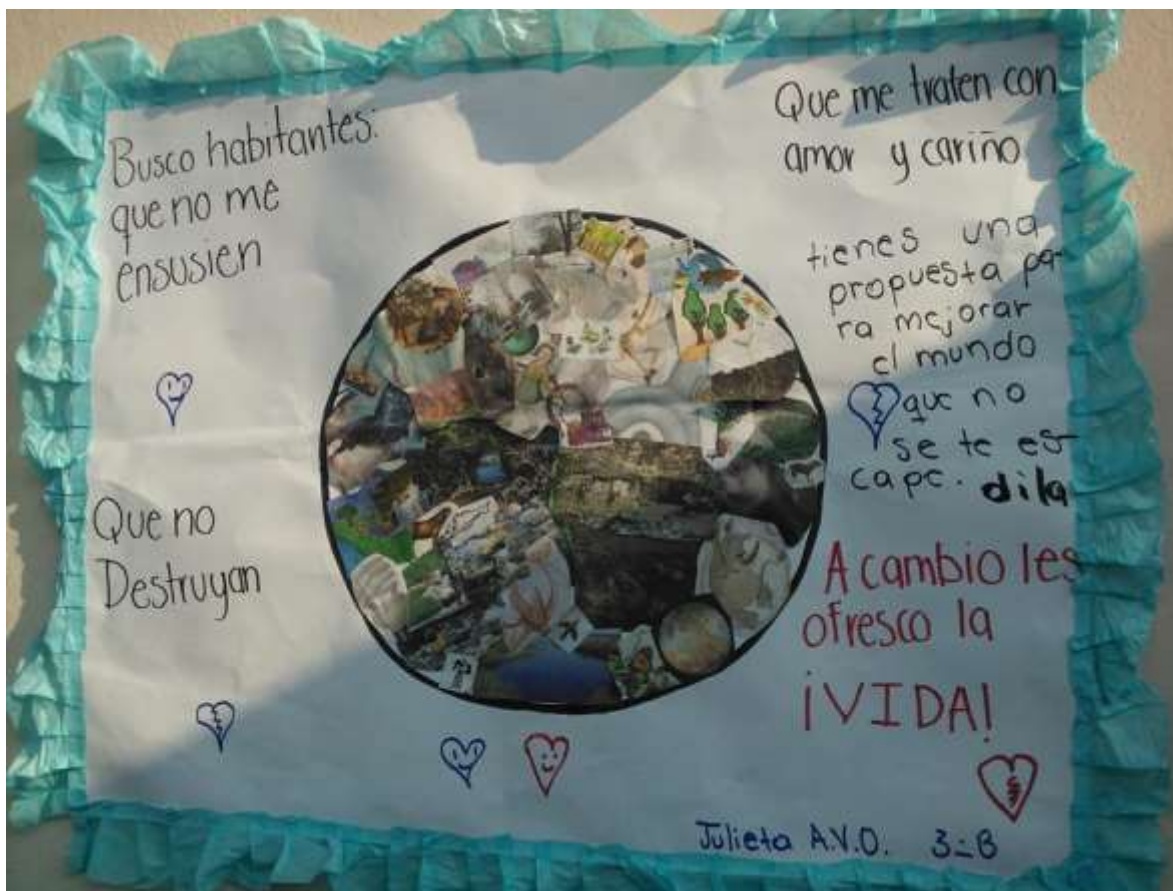 Busco habitantes:
que no me
ensusien
Que no
Destruyan
Que me traten con
amor y cariño
tienes una
propuesta pa-
ra mejorar
el mundo
que no
se te es-
cape. dila
A cambio les
ofresco la
¡VIDA!
Julieta A.V.O. 3=B